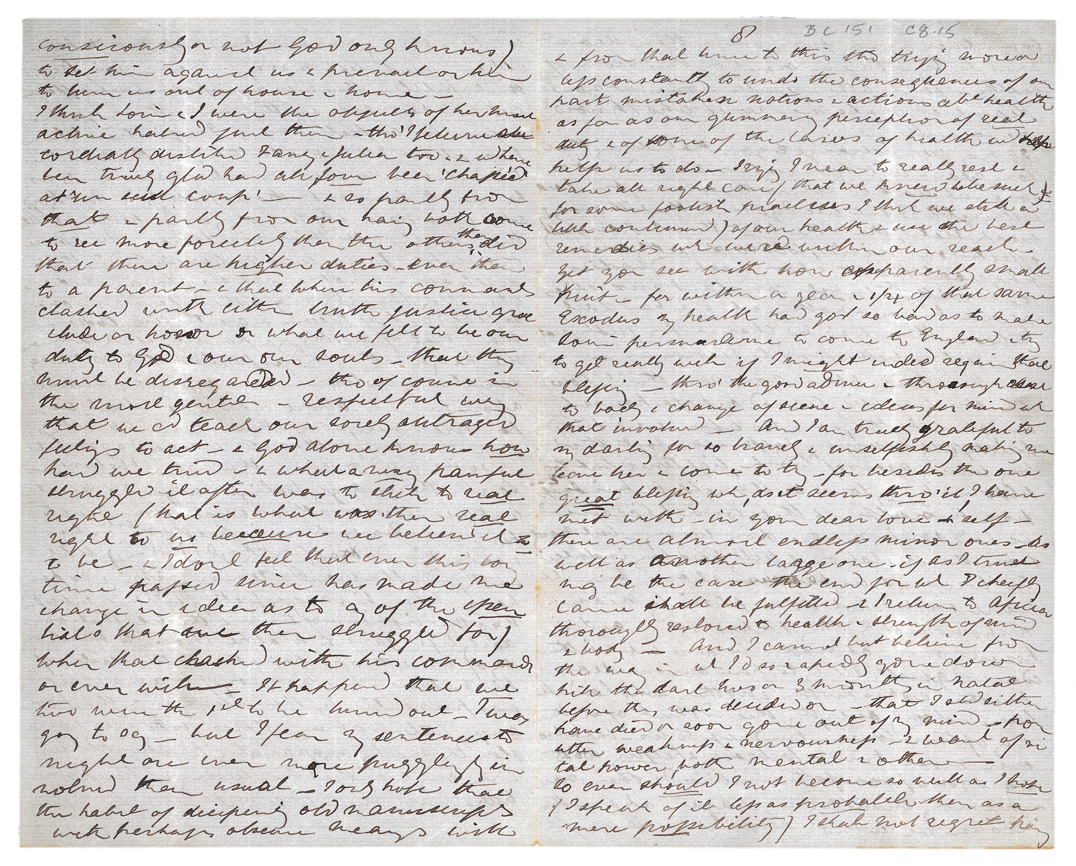 consciously or not God only knows)
to set him against us & prevail on him
to turn us out of house & home –
I think Louie & I were the objects of her most
active hatred just then – tho' I believe she
cordially disliked Fanny & Julia too & wd have
been truly glad had all four been 'chapéd'
at 'un seul coup' – & so partly from
that & partly from our having both come
to see more forcibly than the others then did
that there are higher duties – even than
to a parent – & that when his commands
clashed with either truth justice grat
itude or honor or what we felt to be our
duty to God & our own souls – that they
must be disregarded – tho' of course in
the most gentle – respectful way
that we cd teach our sorely outraged
feelings to act – & God alone knows how
hard we tried – & what a very painful
struggle it often was to stick to real
right (that is what was then real
right to us because we believed it to
to be – & I don't feel that even this long
time passed since has made me
change my ideas as to any of the essen
tials that we then struggled for)
when that clashed with his commands
or even wish – It happened that we
two were the 1st to be turned out – I was
going to say – but I fear my sentences to
night are even more puzzlingly in
volved than usual – I only hope that
the habit of deciphering old manuscripts
with perhaps obscure meanings with
8
BC 151 C8.15
& from that time to this tho' trying more or
less constantly to undo the consequences of our
past mistaken notions & actions abt health
as far as our glimmering perception of real
duty & of some of the laws of health wd
help us to do – trying I mean to really rest &
take all right care (that we knew to be such
for some foolish practices I think we still a
little continued) of our health & use the best
remedies wh were within our reach –
Yet you see with how apparently small
fruit – for within a year & 1/4 of that same
Exodus my health had got so bad as to make
Louie persuade me to come to England & try
to get really well if I might indeed regain that
blessing – thro' the good advice & thorough
to body & change of scene & ideas for mind wh
that involved – And I am truly grateful to
my darling for so bravely & unselfishly making me
leave her & come to try – for besides the one
great blessing wh as it seems thro' it, I have
met with – in your dear love & self –
there are almost endless minor ones – As
well as another large one – if as I trust
may be the case the end for wh I chiefly
came shall be fulfilled & I return to Africa
thoroughly restored to health & strength of mind
& body – And I cannot but believe from
the way in wh I'd so rapidly gone down
hill the last two or 3 months in Natal
before this was decided on – that I shd either
have died or soon gone out of my mind – from
utter weakness & nervousness – & want of vi
tal power both mental & other –
So even should I not become so well as I hope
(I speak of it less as probable than as a
mere possibility) I shall not regret having